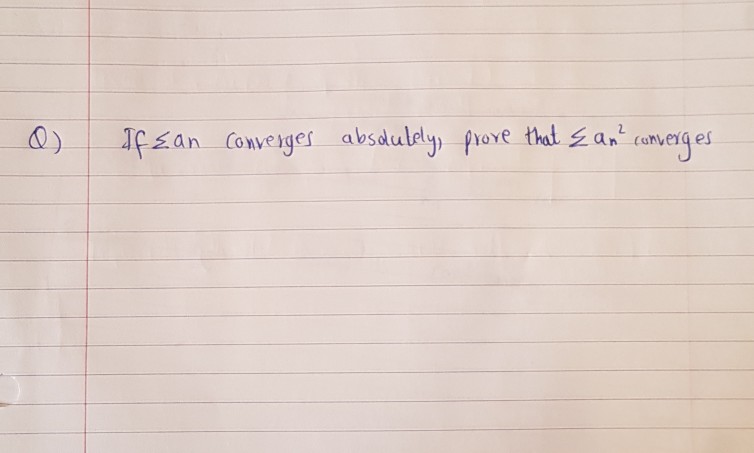 Q) If Σan converges absolutely, prove that Σan² converges